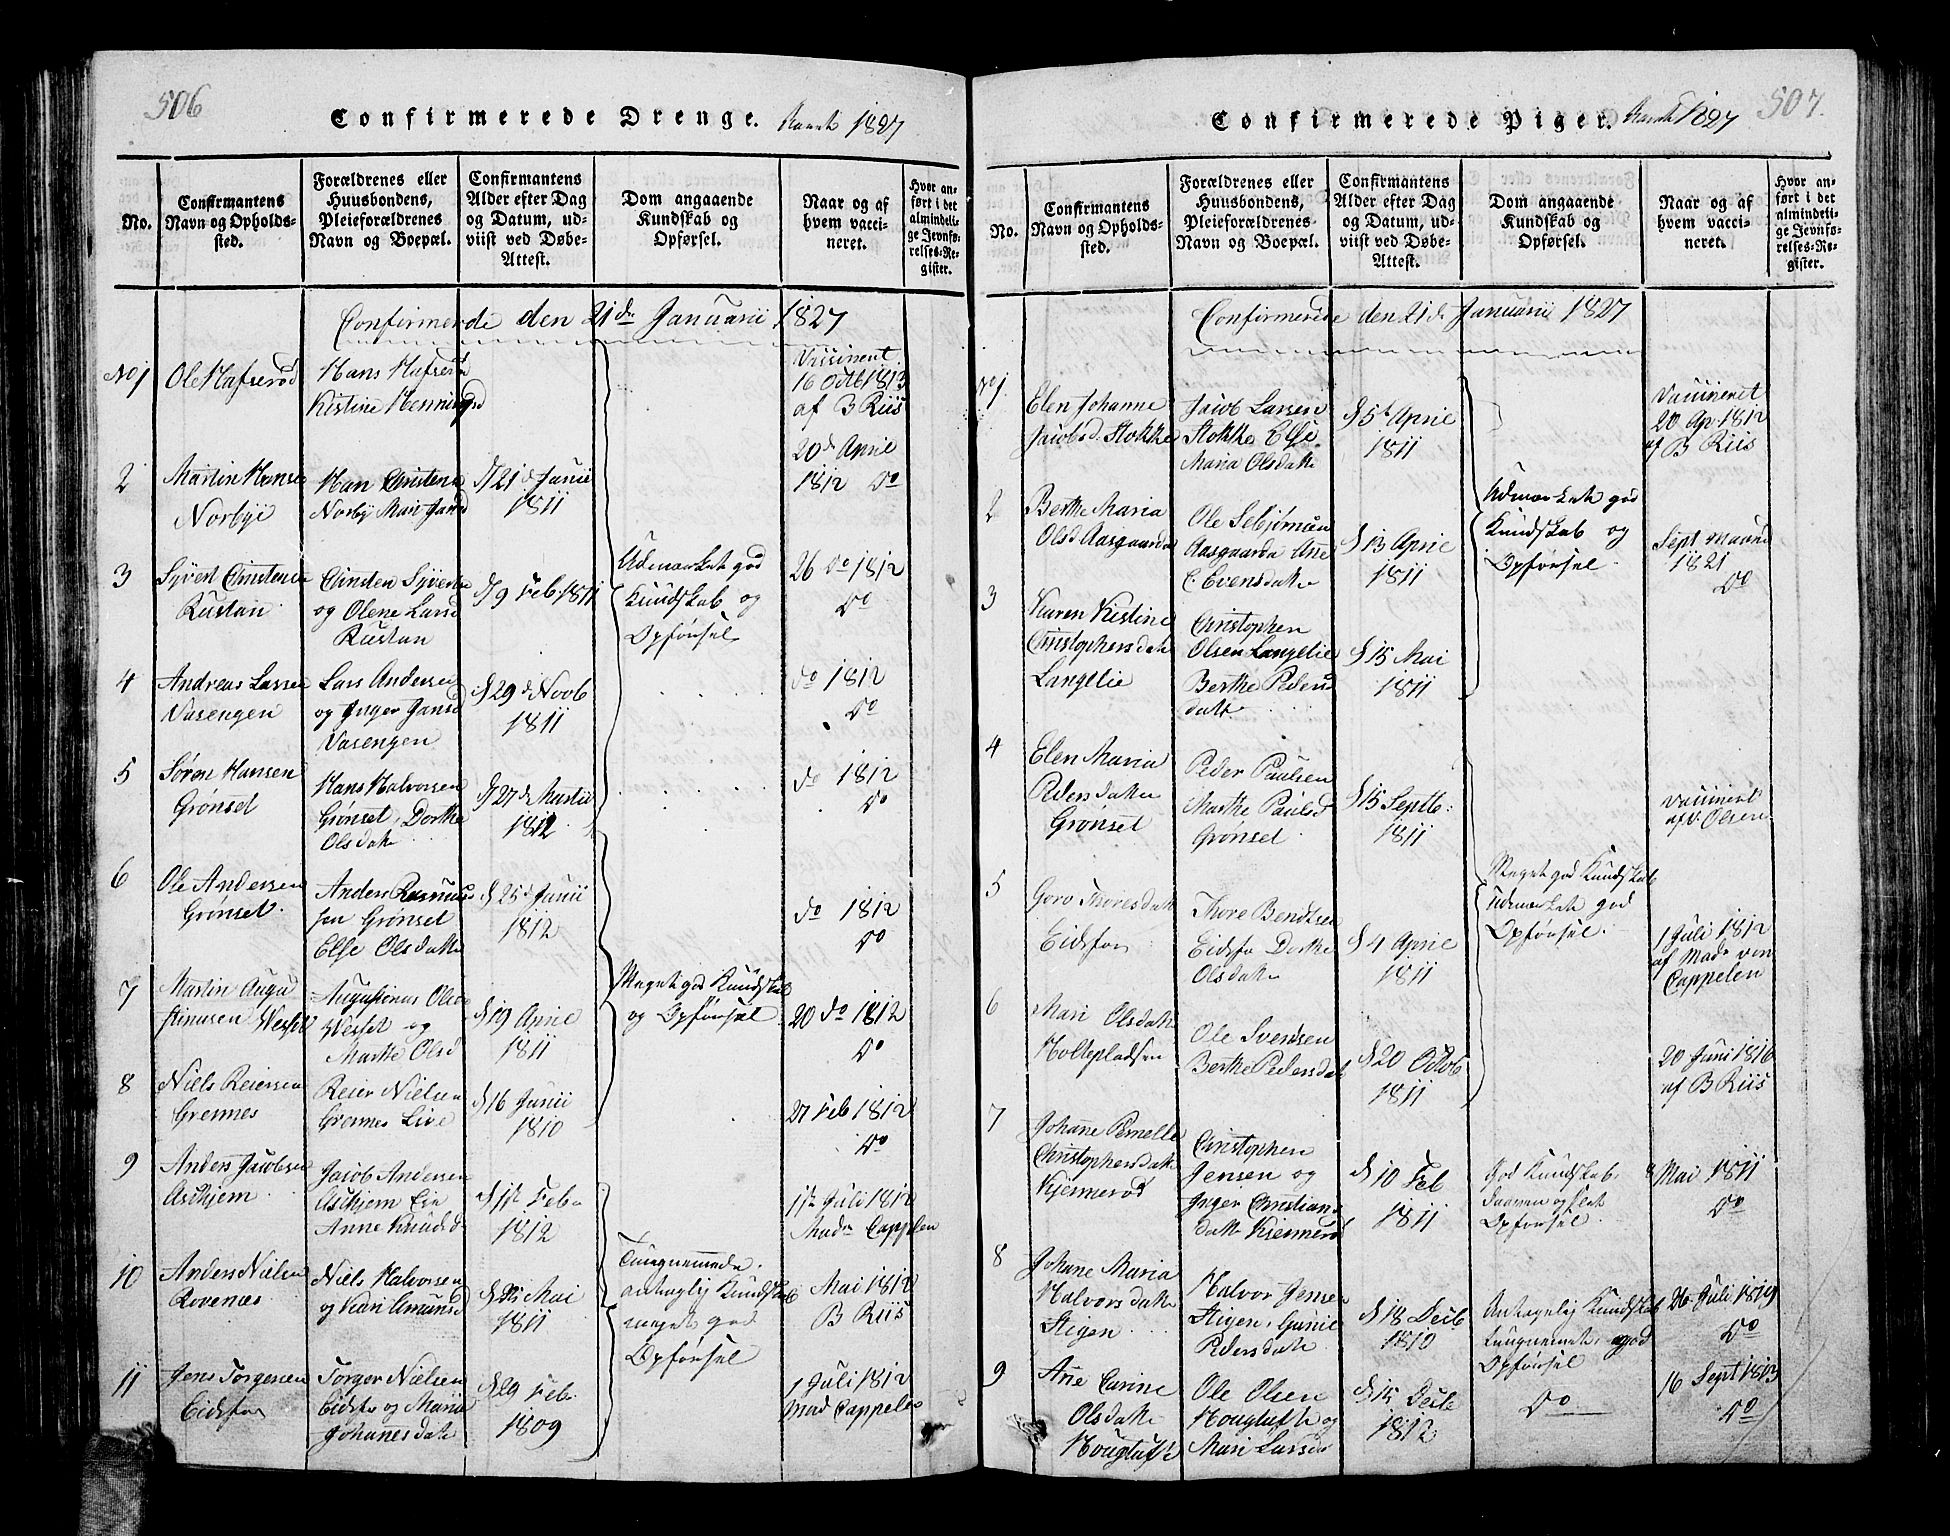 506
Confirmerede Drenge. 1827
No.
Confirmantens Navn og Opholds-sted.
Forældrenes eller Huusbondens, Pleieforældrenes Navn og Boepæl.
Confirmantens Alder efter Dag og Datum, ud-viist ved Døbe-Attest.
Dom angaaende Kundskab og Opførsel.
Naar og af hvem vacci-neret.
Hvor an-ført i det almindeli-ge Jevnfø-relses-Re-gister.
Confirmerede den 21de Januarii 1827
No 1
Ole Hafserød
Hans Hafserød
Kistine Henningsd
Vaccineret
16 Octb 1813
af B Riis
2
Martin Hansen
Norbye
Han Christens
Norby Mari Jansd
d 21 d Junii
1811
20d April
1812 do
3
Syvert Christens
Rustan
Christen Syverts
og Olene Larsd
Rustan
d 9 Feb. 1811
Udmærket god
Kundskab og
Opførsel
26 do 1812
do
4
Andreas Larsen
Vasengen
Lars Andersen
og Inger Jansd
Vasengen
d 29 d Novb
1811
do 1812
do
5
Søren Hansen
Grønset
Hans Halvorsen
Grønset, Dorthe
Olsdatr
d 27 d Martii
1812
do 1812
do
6
Ole Andersen
Grønset.
Anders Rasmus
sen Grønset
Else Olsdatr
d 25 d Junii
1812
do 1812
do
7
Martin Augu
stinusen Wessel
Augustinus Olse
Wessel og
Marthe Olsd
d 19 April
1811
Meget god Kundskab
og Opførsel
20 do 1812
do
8
Niels Reiersen
Grennes
Reier Nielsen
Grennes Live
d 16 Junii
1810
27 Feb 1812
do
9
Anders Jacobsen
Askjem
Jacob Andersen
Askjem
Anne Knudsd
d 1st Feb
1812
1ste Juli 1812
Mad Cappelen
10
Anders Nielsen
Rovenæs
Niels Halvorsen
og Kari Amundsd
Mai
1811
Tungnemmede
antagelig Kundskab
meget god
Opførsel
Mai 1812
B Riis
11
Jens Torgersen
Eidsfos
Torger Nielsen
Eidsfos og Maria
Johannesdatr
d 29 Feb.
1809
1 Juli 1812
Mad Cappelen
507.
Confirmerede Piger. 1827
No.
Confirmantens Navn og Opholds-sted.
Forældrenes eller Huusbondens, Pleieforældrenes Navn og Boepæl.
Confirmantens Alder efter Dag og Datum, ud-viist ved Døbe-Attest.
Dom angaaende Kundskab og Opførsel.
Naar og af hvem vacci-neret.
Hvor an-ført i det almindeli-ge Jevnfø-relses-Re-gister.
Confirmerede den 21 d Januarii 1827
No 1
Elen Johanne
Jacobsd. Stokke
Jacob Larsen
Stokke Else
Maria Olsdatr
d 5t April
1811
Vaccineret
20 Ap. 1812
af B Riis
2
Berthe Maria
Olsd Aasgaarden
Ole
Aasgaarden Ane
Evensdatr
d 13 April
1811
Udmærket god
Kundskab og
Opførsel
Sept
1821
do
3
Karen Kistine
Christophersdatr
Langelie
Christopher
Olsen Langelie
Berthe Peders
datr
d 15 Mai
1811
4
Elen Maria
Pedersdatter
Grønset
Peder Paulsen
Marthe Paulsd
Grønset
d 15 Septb.
1811
vaccineret
af Olsen
5
Goro Thoresdatr
Eidsfos
Thore Bendtsen
Eidsfos Dorthe
Olsdatr
d 4 April
1811
Meget god Kundskab
udmærket god
Opførsel.
1 Juli 1812
af Mad von
Cappelen
6
Mari Olsdatr
Holtepladsen
Ole Svendsen
Berthe Pedersdat
d 20 Octob
1811
20 Juni 1816
af B Riis
7
Johane Pernelle
Christophersdatr
Kjennerød
Christopher
Jensen og
Inger Christians
datr Kjennerød
d 10 Feb
1811
God Kundskab
Opførsel.
8 Mai 1811
do
8
Johane Maria
Halvorsdatr
Stigen
Halvor Jensen
Stigen, Gunil
Pedersdatr
d 18 Decb
1810
Antagelig Kundskab
Tungnemet, god
Opførsel
26 Juli 1819
do
9
Ane Carine
Olsdatr
Hougtuft
Ole Olsen
Hougtuft og
Mari Larsd
d 15 Decb
1812
do
16 Sept 1813
do